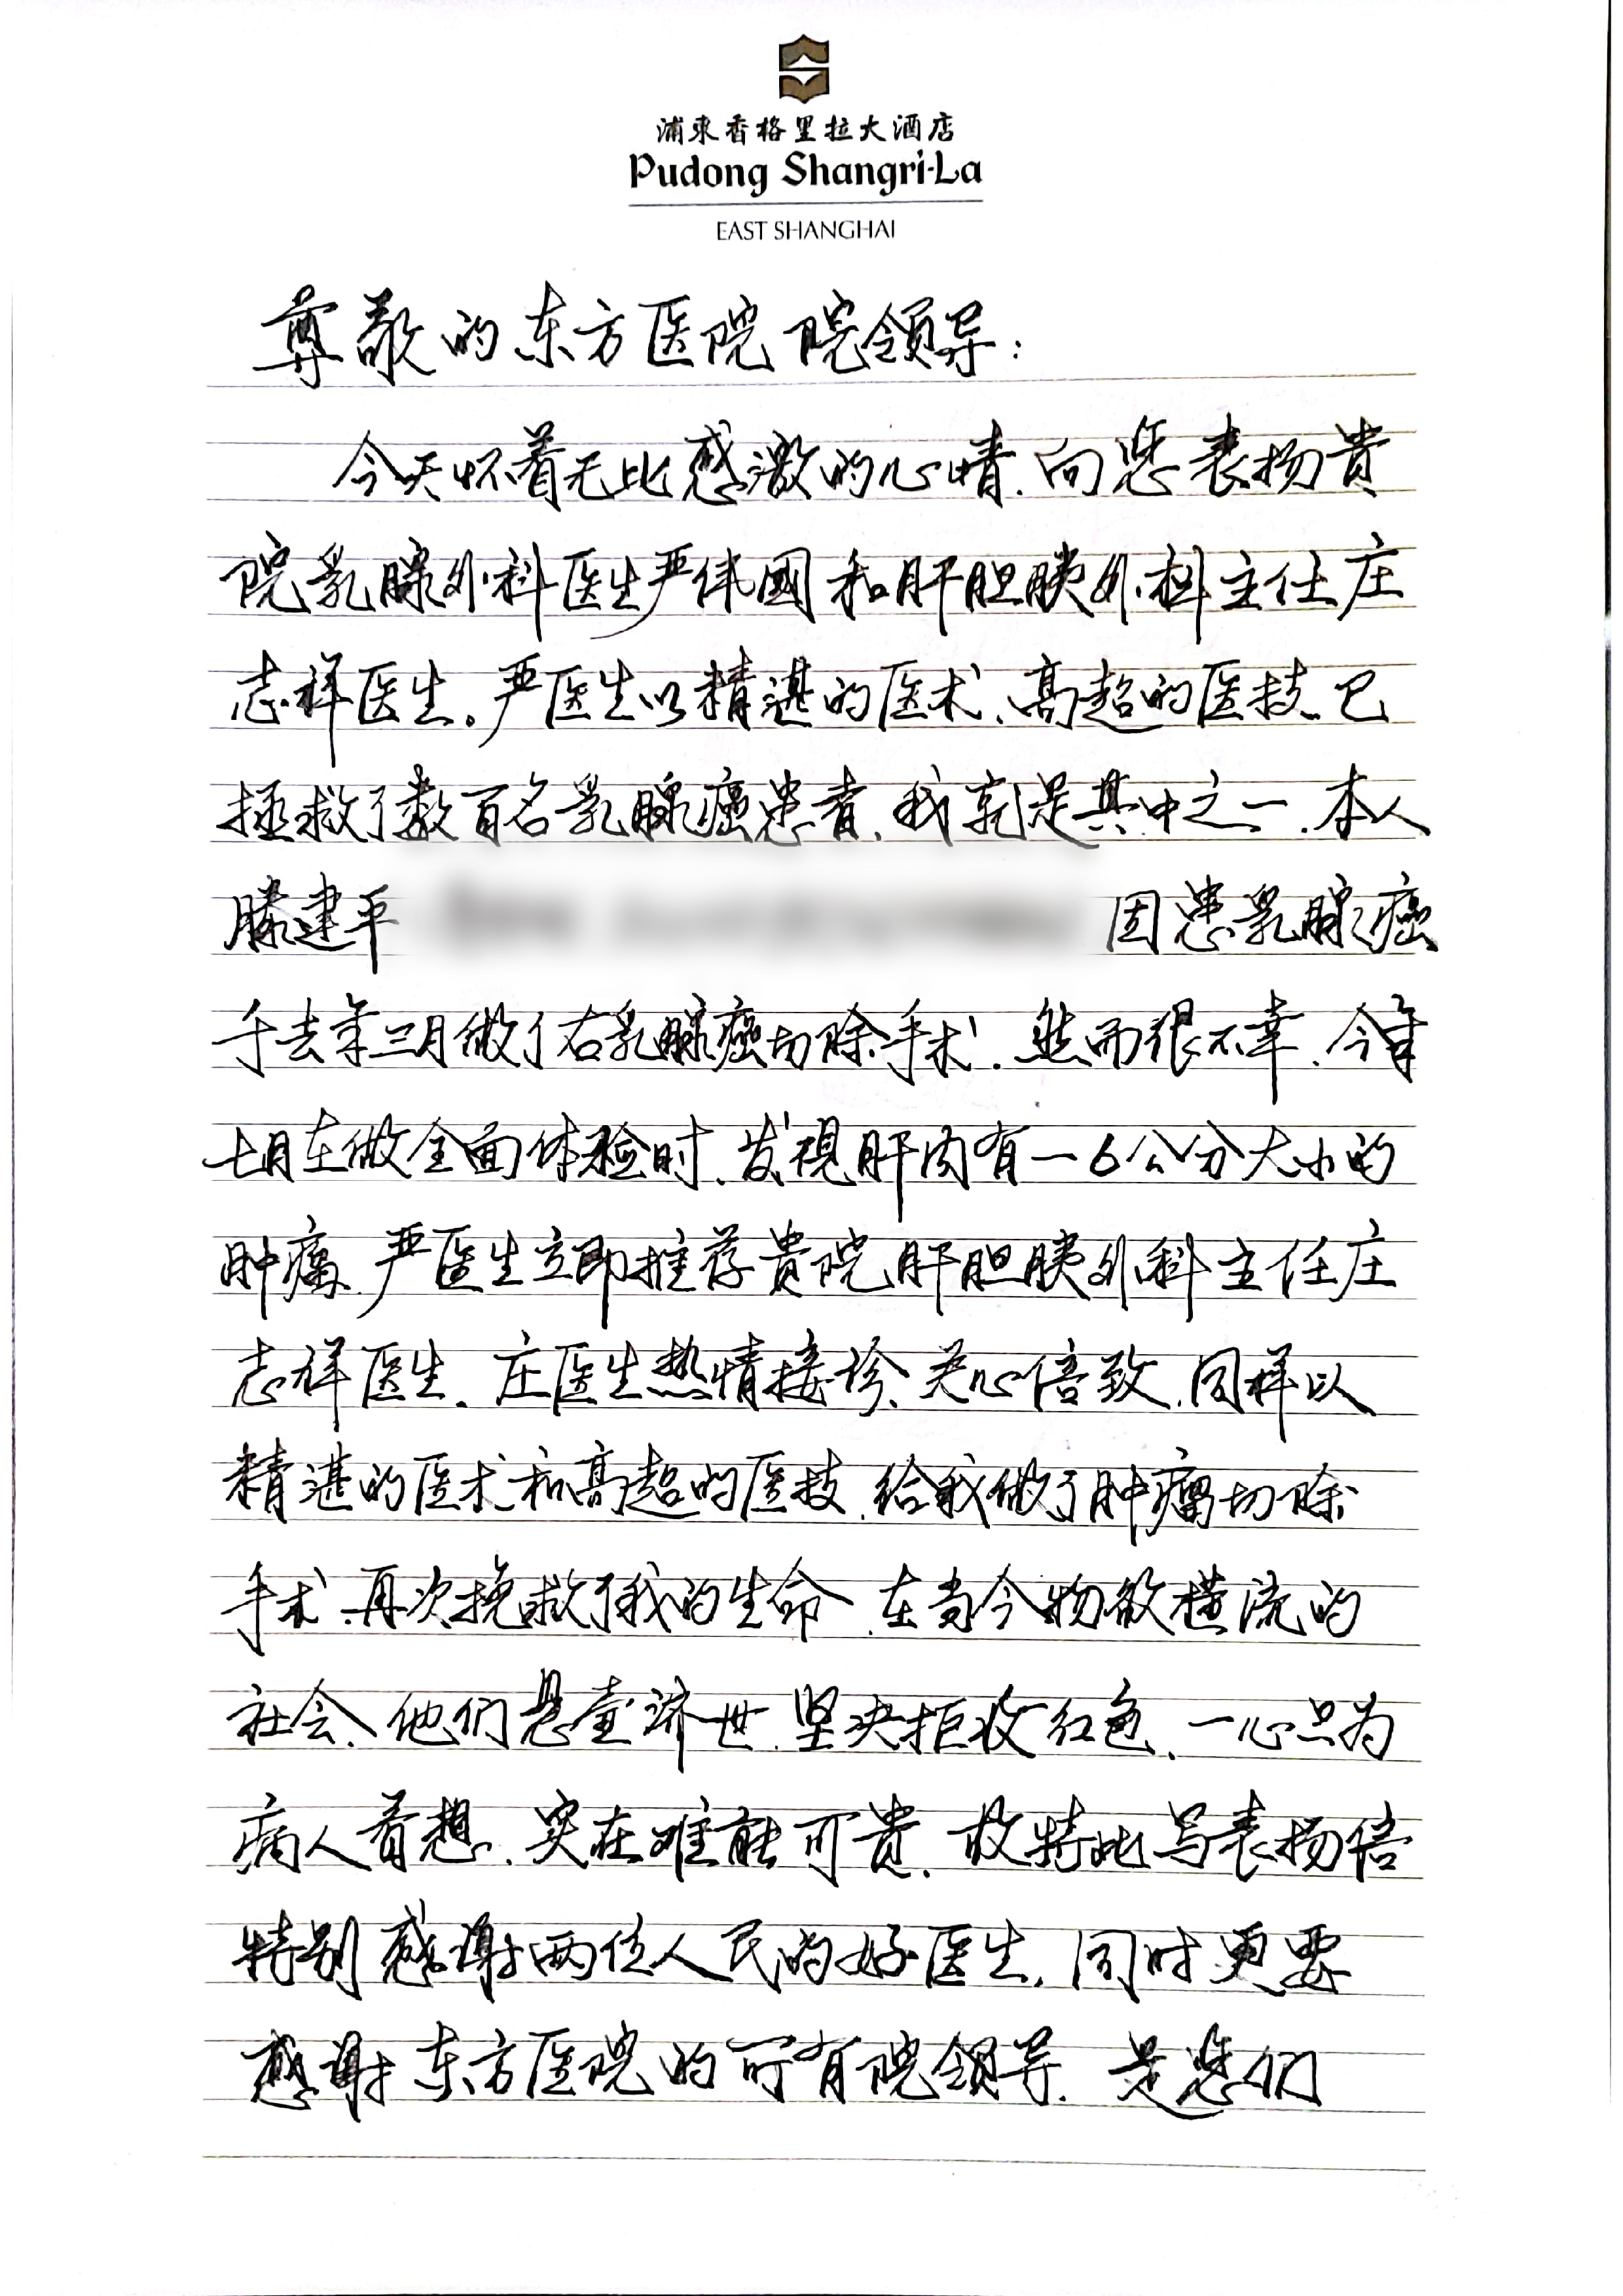 浦東香格里拉大酒店
Pudong Shangri-La
EAST SHANGHAI
尊敬的东方医院院领导：
今天怀着无比感激的心情、向您表扬贵
院乳腺外科医生严伟國和肝胆胰外科主任庄
志祥医生。严医生以精湛的医术、高超的医技、已
拯救了数百名乳腺癌患者、我就是其中之一、本人
滕建平
因患乳腺癌
于去年三月做了右乳腺癌切除手术、然而很不幸、今年
七月在做全面体验时、发现肝内有一6公分大小的
肿瘤、严医生立即推荐贵院肝胆胰外科主任庄
志祥医生。庄医生热情接诊、关心倍致、同样以
精湛的医术和高超的医技、给我做了肿瘤切除
手术、再次挽救了我的生命、在当今物欲横流的
社会、他们悬壶济世、坚决拒收红包、一心只为
病人着想、实在难能可贵、故特此写表扬信
特别感谢两位人民的好医生、同时更要
感谢东方医院的所有院领导、是您们